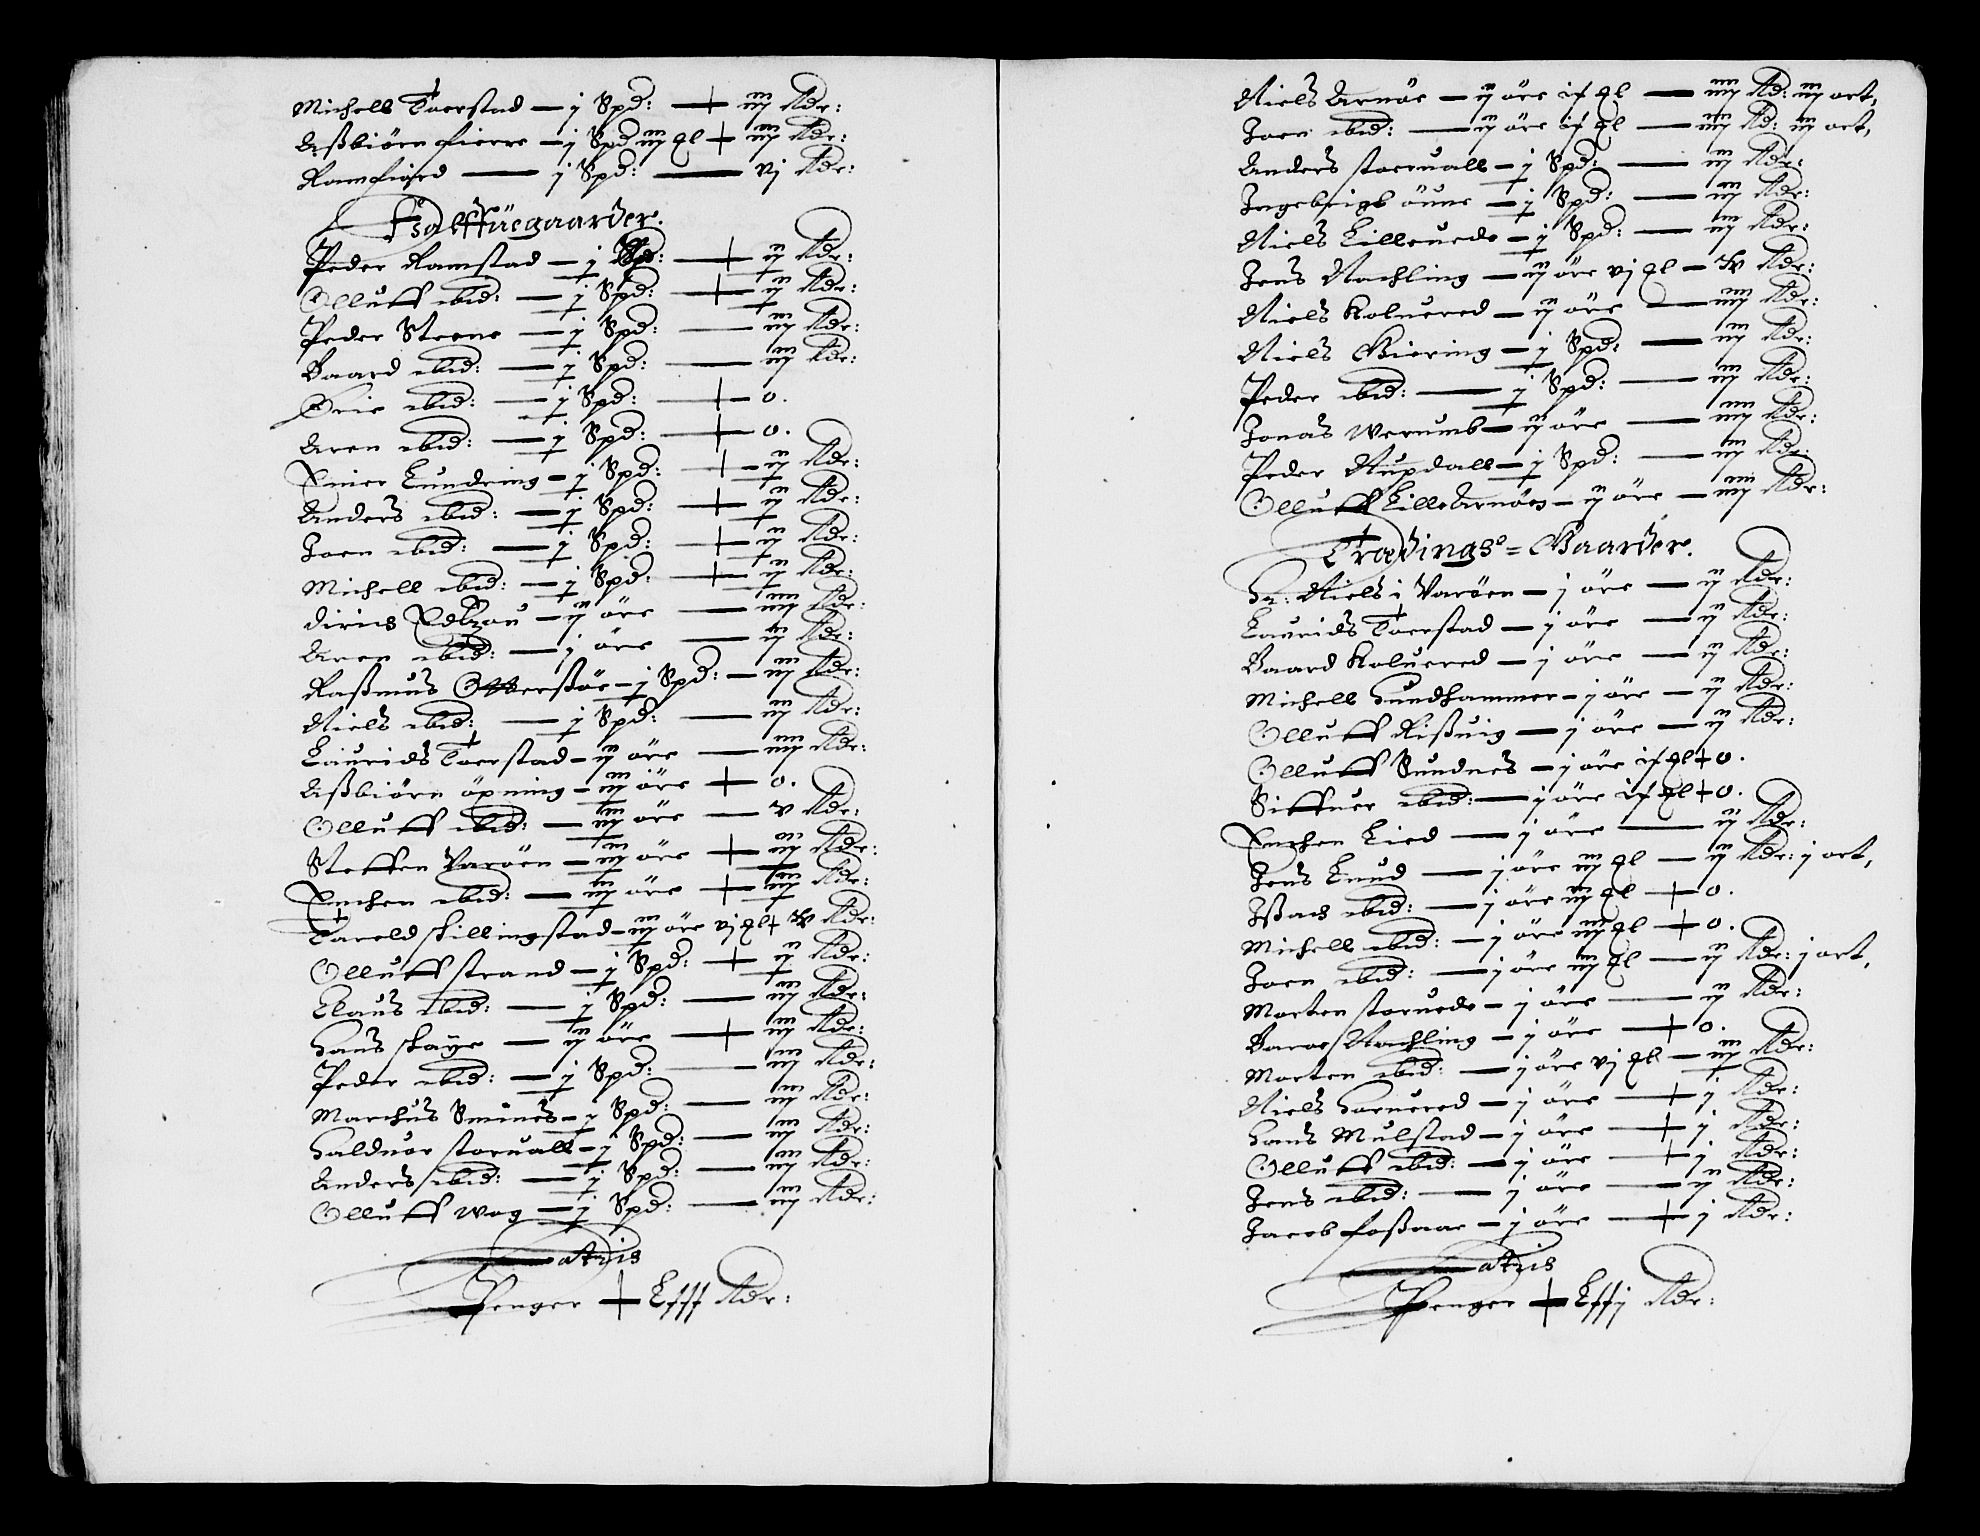 Michell Toerstad — j Spd: — iij Rdr:
Aßbiörn fierre — j Spd iij ℔ — iij Rdr:
Ramfiord — j Spd: — vj Rdr:
Halffuegaarder.
Peder Ramstad — j Spd: — ij Rdr:
Olluff ibid: — j Spd: — ij Rdr:
Peder Steene — j Spd: — iij Rdr:
Baard ibid: — j Spd: — iij Rdr:
Eric ibid: — j Spd: — 0.
Aren ibid: — j Spd: — 0.
Einer Lundring — j Spd: — ij Rdr:
Anders ibid: — j Spd: — ij Rdr:
Joen ibid: — j Spd: — ij Rdr:
Michell ibid: — j Spd: — ij Rdr:
Dirics — ij öre — iiij Rdr:
Aren ibid: — j öre — ij Rdr:
Raßmus — j Spd: — iij Rdr:
Niels ibid: — j Spd: — iij Rdr:
Laurids Toerstad — ij öre — iiij Rdr:
Aßbiörn öpning — iij öre — 0.
Olluff ibid: — iij öre — v Rdr:
Steffen Varöen — iij öre — iij Rdr:
Enchen ibid: — iij öre — iij Rdr:
Tarold skillingstad — iij öre vj ℔ — Rdr:
Olluff strand — j Spd: — ij Rdr:
Claus ibid: — j Spd: — iij Rdr:
Hans skaye — ij öre — iij Rdr:
Peder ibid: — j Spd: — iij Rdr:
Marchus Sminês — j Spd: — iij Rdr:
Halduor storuall — j Spd: — iij Rdr:
Anders ibid: — j Spd: — iij Rdr:
Olluff Wog — j Spd: — iij Rdr:
Latris
Penger — Lxxx Rdr:
Niels Arnöe — ij öre ix ℔ — iiij Rd: iij ort,
Joen ibid: — ij öre ix ℔ — iiij Rd: iij ort,
Anders storuall — j Spd: — iij Rdr:
Ingebrigt öune — j Spd: — iij Rdr:
Niels Lilleuede — j Spd: — iij Rdr:
Jens Nachling — ij öre vj ℔ — Rdr:
Niels Koluered — ij öre — iiij Rdr:
Niels Giering — j Spd: — iij Rdr:
Peder ibid: — j Spd: — iij Rdr:
Jonas Werumb — ij öre — iiij Rdr:
Peder Nupdall — j Spd: — iij Rdr:
Olluff Lille Arnöes — ij öre — iiij Rdr:
Trædings-Gaarder.
Hr: Niels i Varöen — j öre — ij Rdr:
Laurids Toerstad — j öre — ij Rdr:
Baard Koluered — j öre — ij Rdr:
Michell Hundhammer — j öre — ij Rdr:
Olluff Rißuig — j öre — ij Rdr:
Olluff Sundnes — j öre ix ℔ — 0.
Siffuer ibid: — j öre ix ℔ — 0.
Enchen Lied — j öre — ij Rdr:
Jens Lund — j öre iij ℔ — ij Rdr: j ort,
Isach ibid: — j öre iij ℔ — 0.
Michell ibid: — j öre iij ℔ — 0.
Joen ibid: — j öre iij ℔ — ij Rdr: j ort,
Morten storuede — j öre — ij Rdr:
Baroe Nachling — j öre — 0.
Morten ibid: — j öre vj ℔ — iij Rdr:
Niels Horuered — j öre — j Rdr:
Hans Mulstad — j öre — j Rdr:
Olluff ibid: — j öre — j Rdr:
Jens ibid: — j öre — ij Rdr:
Jacob Foßaae — j öre — j Rdr:
Latris
Penger — Lxxj Rdr: